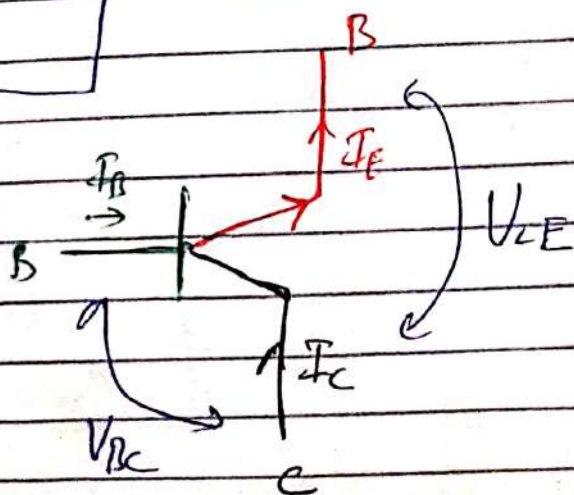 B
I_E
I_B
V_CE
B
I_C
V_BC
C